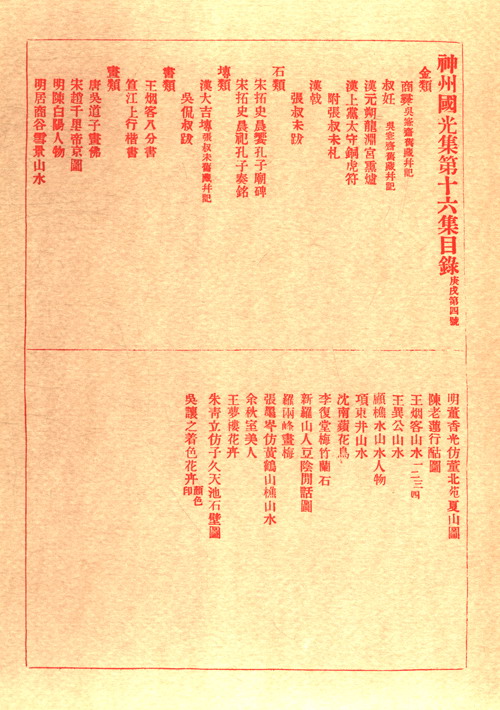 神州國光集第十六集目錄 庚戌第四號
金類
商彝 吳荷齋舊藏幷記
叔妊 吳荷齋舊藏幷記
漢元朔龍淵宮熏爐
漢上黨太守銅虎符
附張叔未札
漢戟
張叔未跋
石類
宋拓史晨饗孔子廟碑
宋拓史晨祀孔子奏銘
塼類
漢大吉塼 張叔未舊藏幷記
吳侃叔跋
書類
王烟客八分書
笪江上行楷書
畫類
唐吳道子畫佛
宋趙千里帝京圖
明陳白陽人物
明居商谷雪景山水
明董香光仿董北苑夏山圖
陳老蓮行酤圖
王烟客山水 一二三四
王異公山水
顧樵水山水人物
項東井山水
沈南蘋花鳥
李復堂梅竹蘭石
新羅山人豆陰閒話圖
羅兩峰畫梅
張墨岑仿黃鶴山樵山水
余秋室美人
王夢樓花卉
朱青立仿子久天池石壁圖
吳讓之着色花卉 顏色印